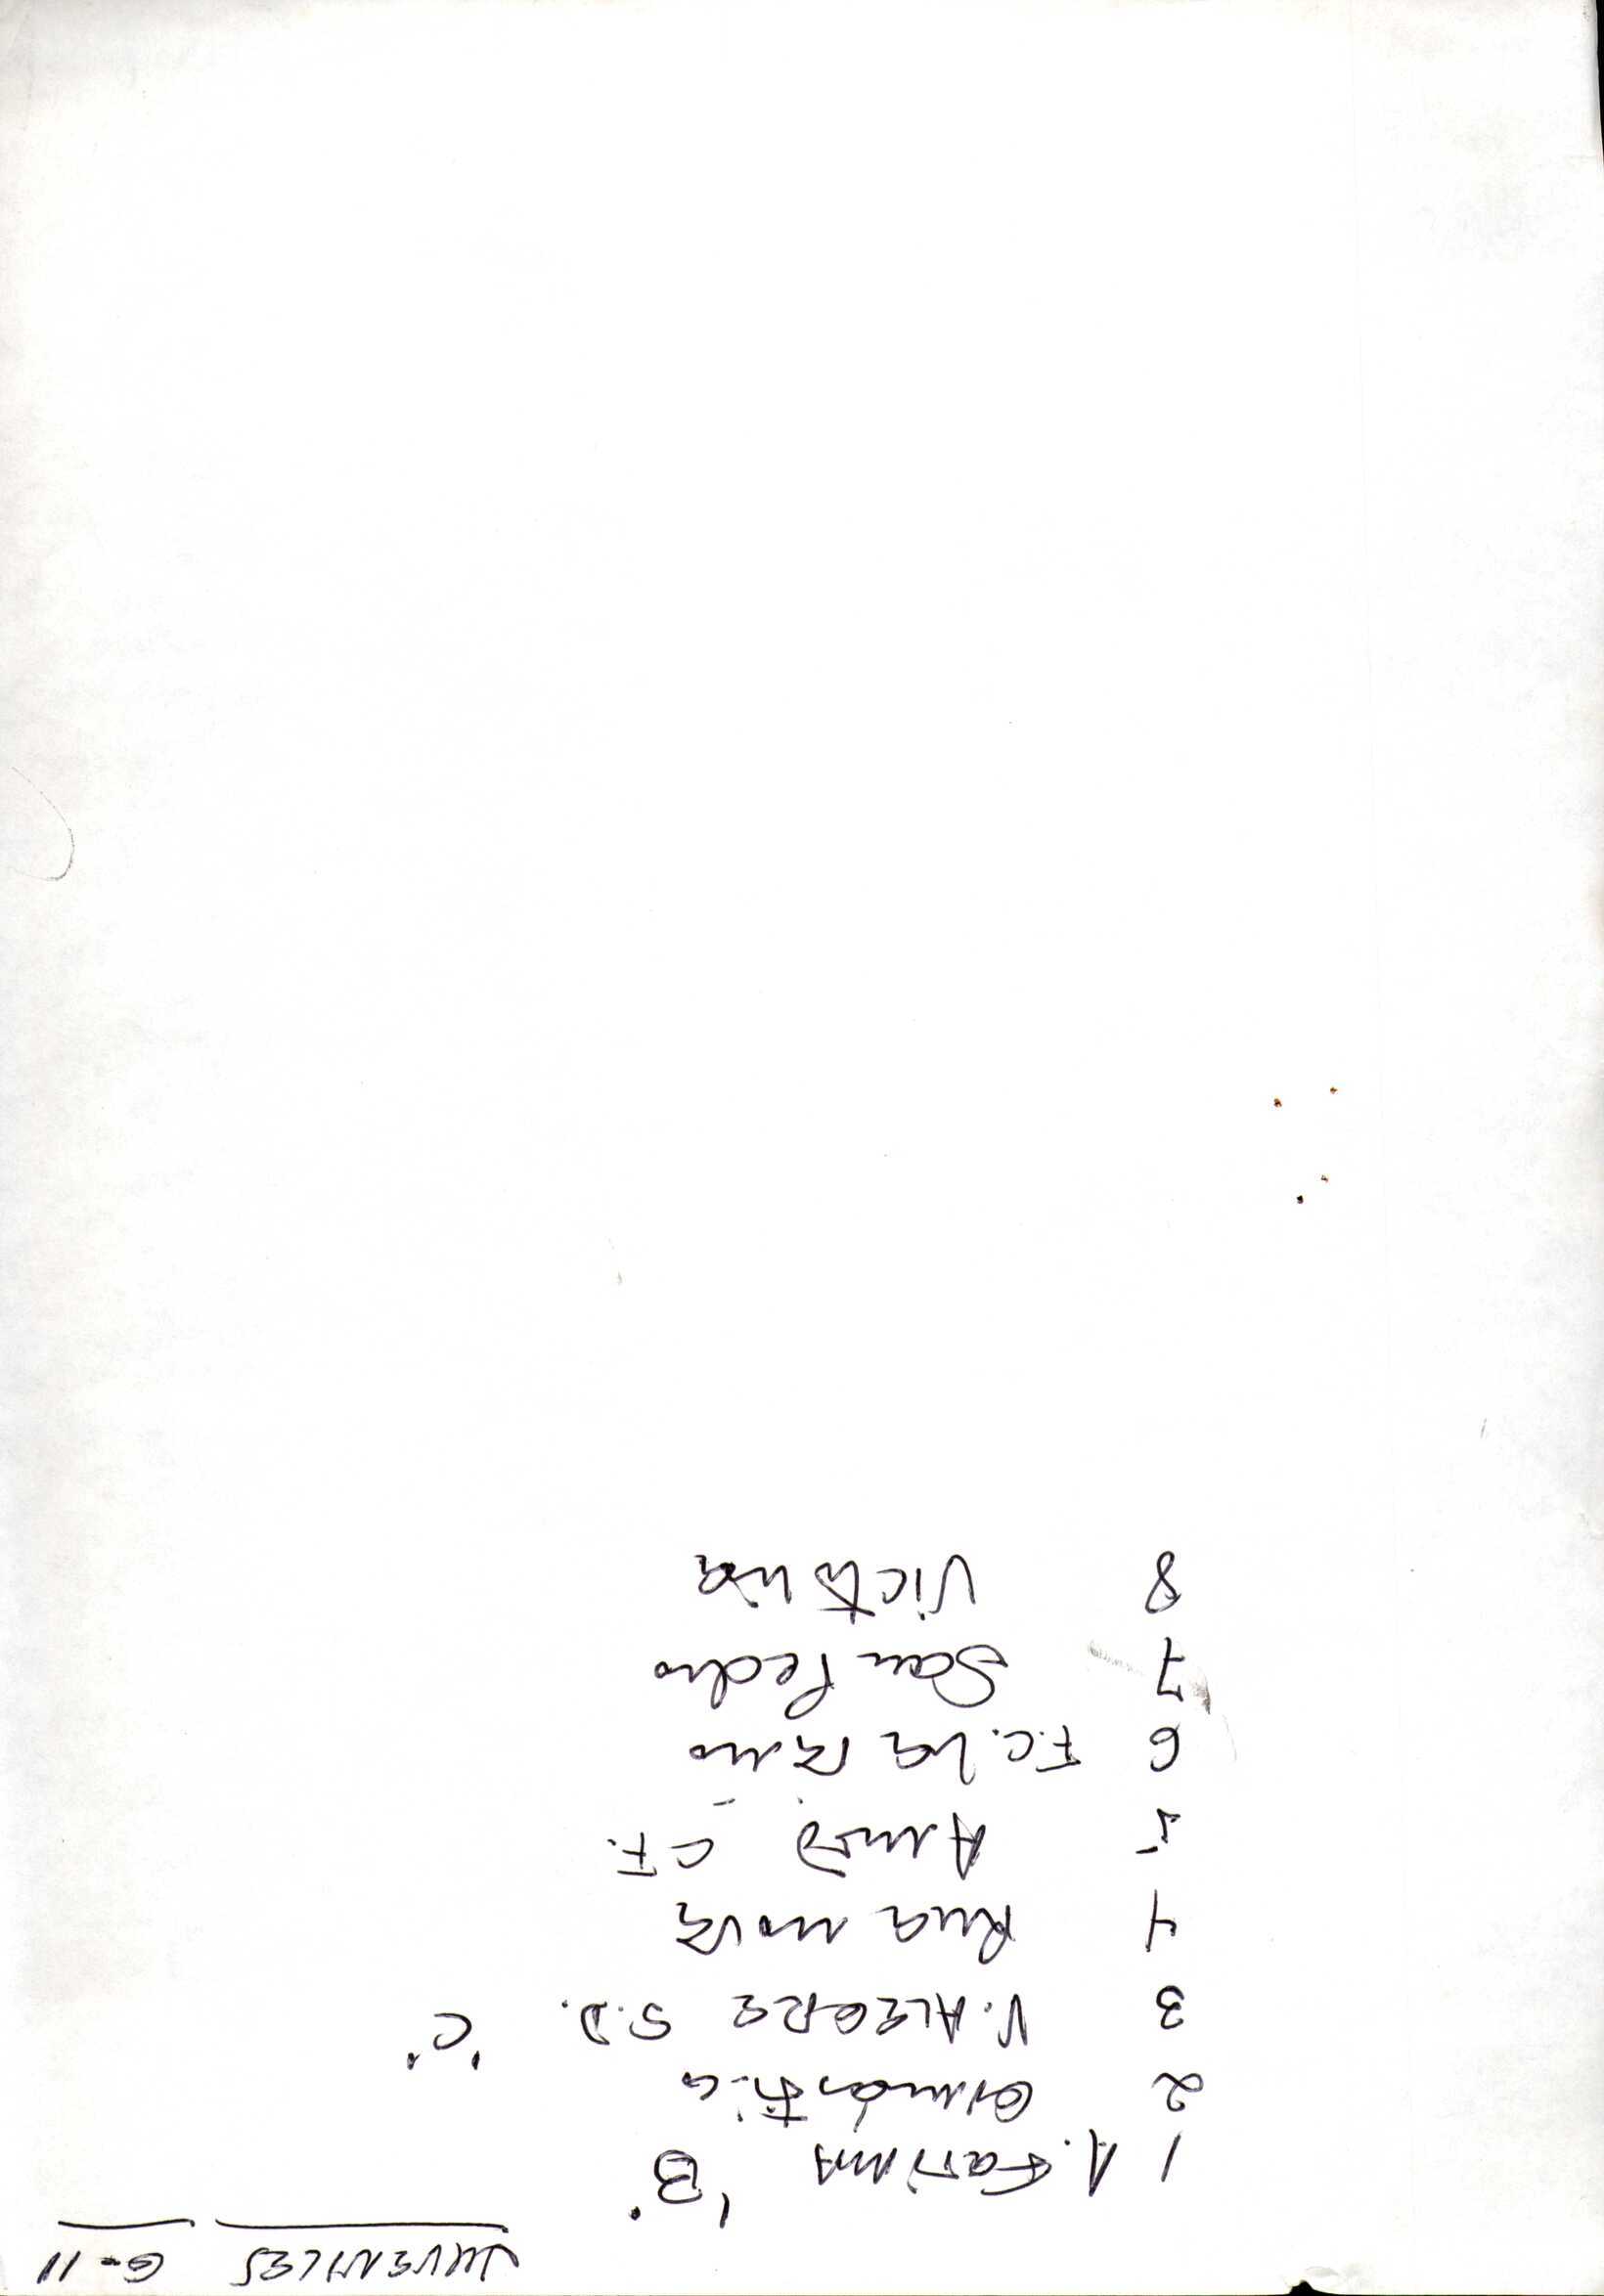 JUVENILES G-11
1 A. Fatima 'B'
2 Gimnástica
3 V. ALEGRE S.D. 'C'
4 Rua nova
5 Arnó C.F.
6 F.C. La Rua
7 San Pedro
8 Victoria